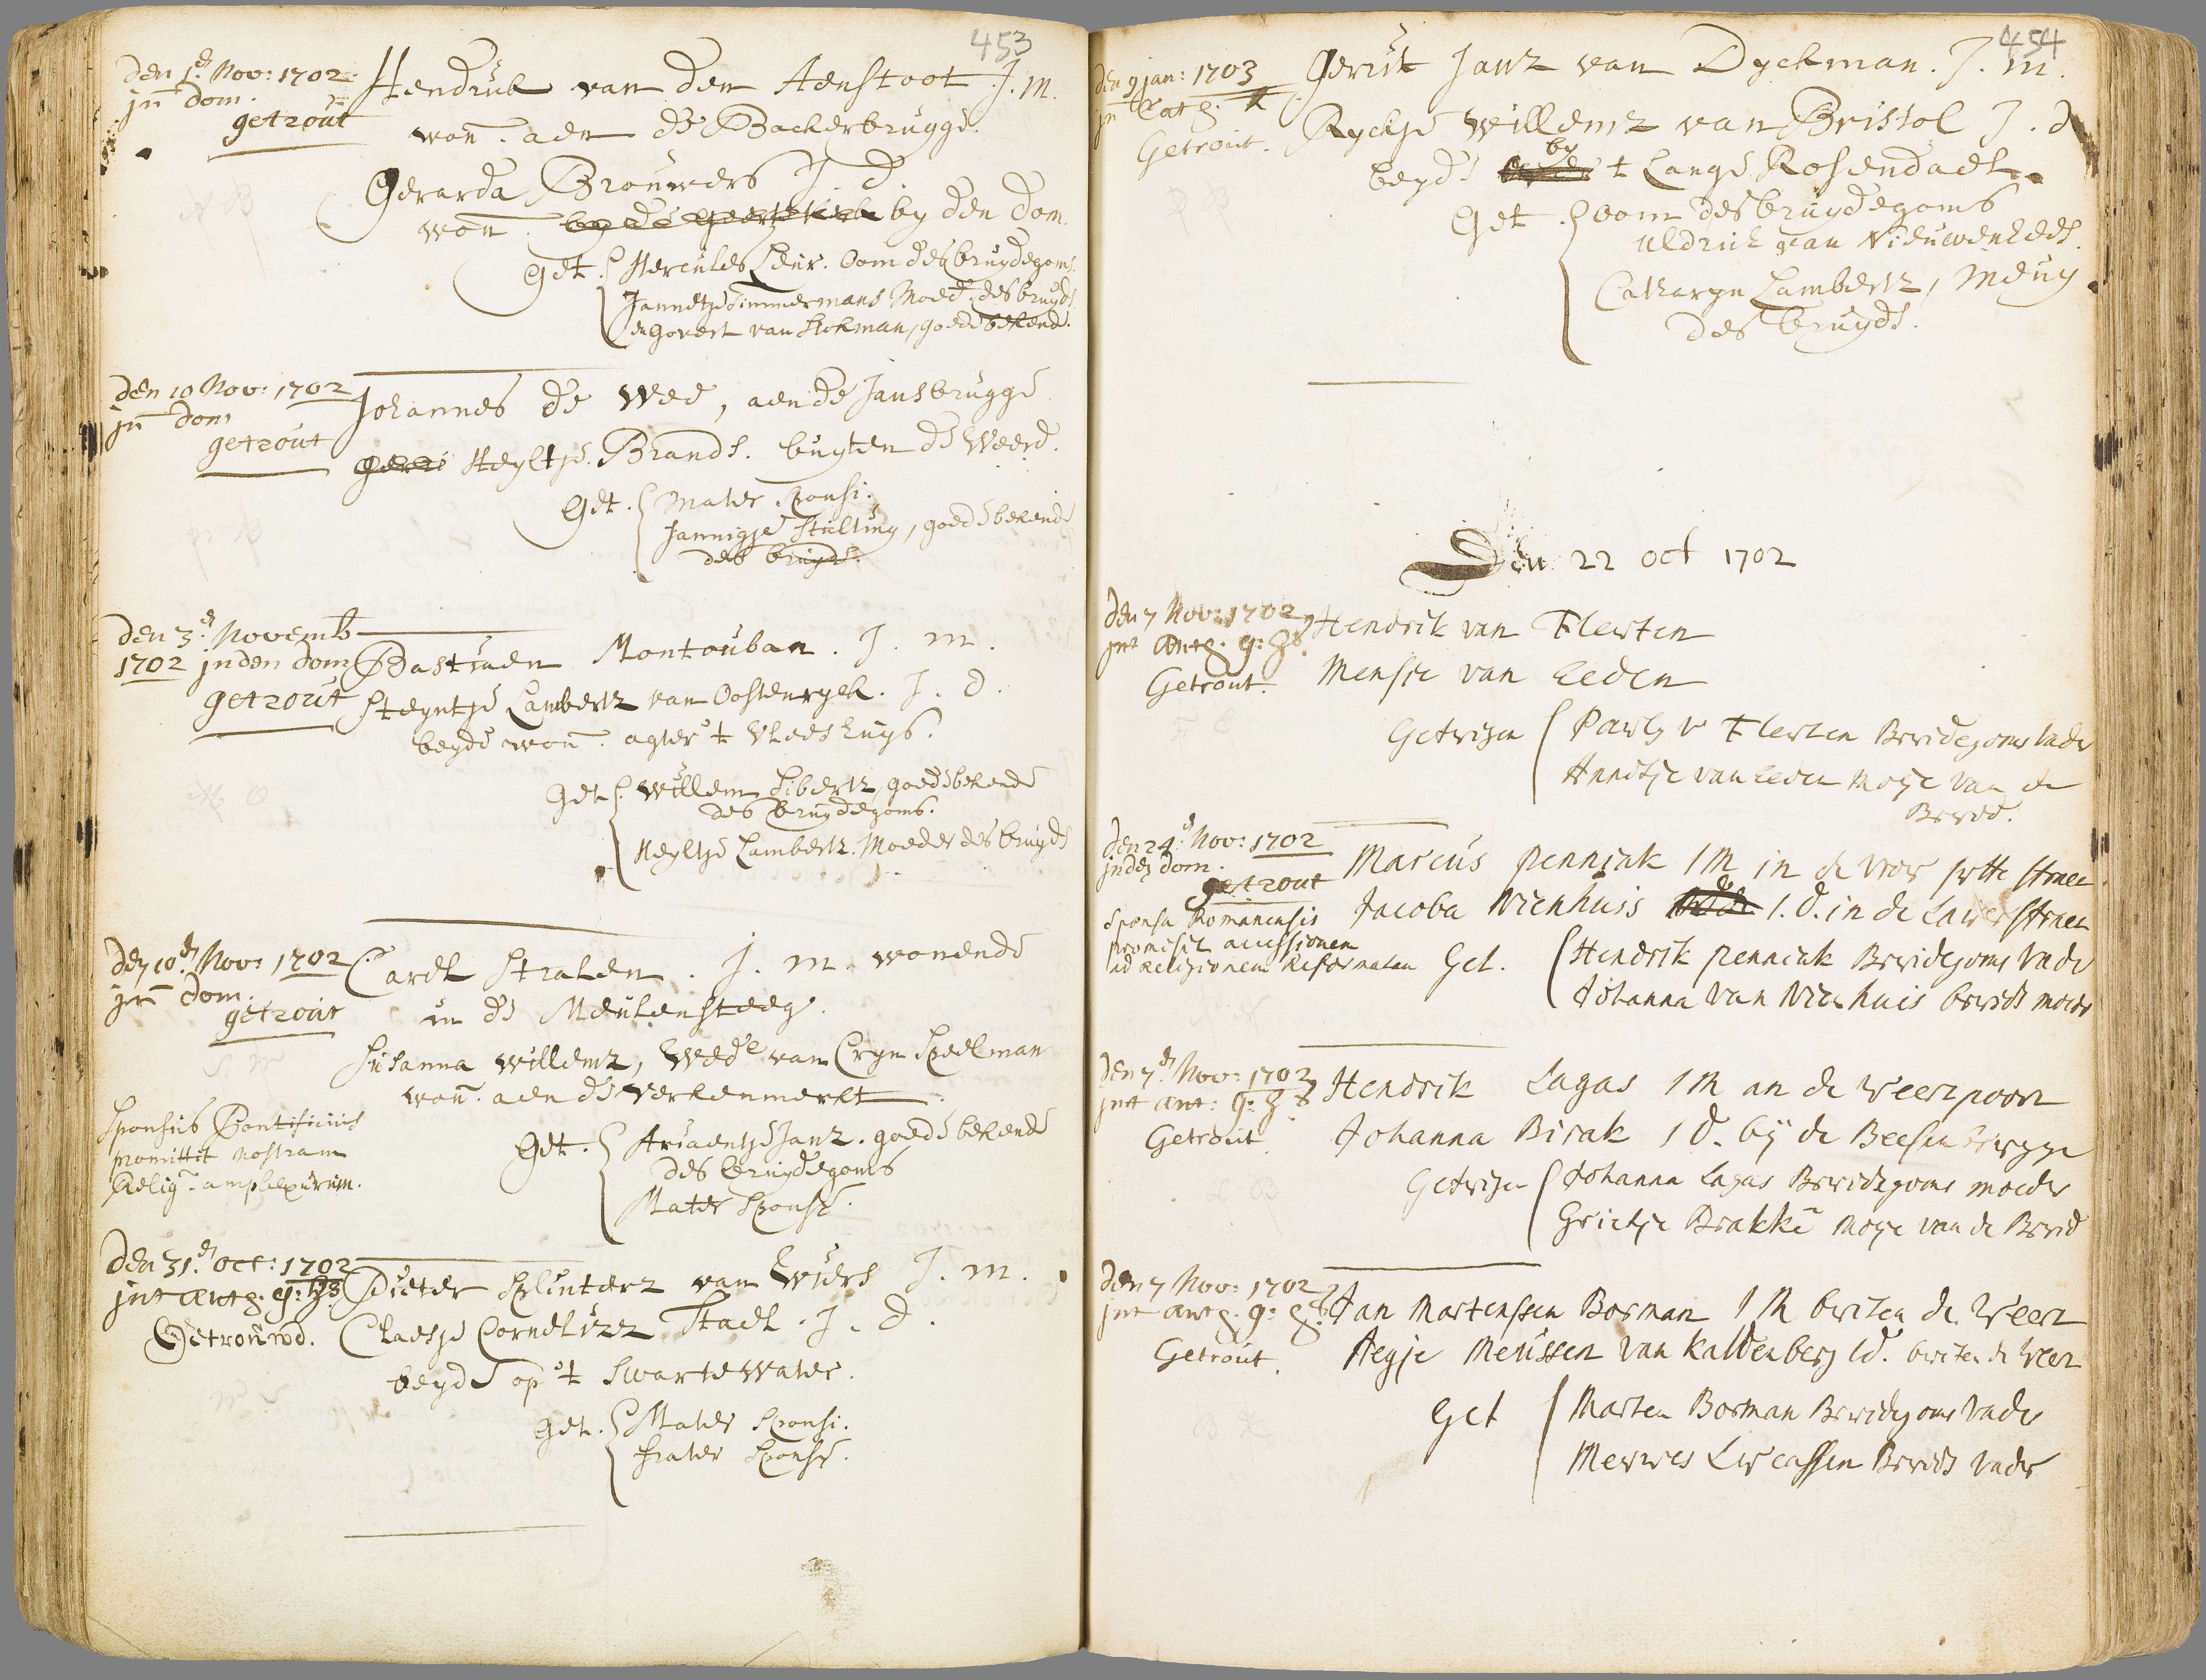 453
den 1.e Nov: 1702.
jn dom.
getrout
Hendrik van den Aenstoot J. m.
won. aen de Backerbrugge.
Gerarda Brouwers J. d.
won. by de Geertekerk by den Dom.
Get. Hercules Leur. Oom des bruydegoms.
Jannetje Timmermans Moed. des bruyds.
en Govert van Stokman, goede bekend.
den 10 Nov: 1702
jn dom
getrout
Johannes de Wee, aen de Jansbrugge
Heyltje Brands. buyten de Weerd.
Get. Mater Sponsi.
Jannigje Stulting, goede bekende
des bruyds.
den 3.e Novemb
1702 jnden dom
getrout
Bastiaen Montouban. J. m.
Steyntje Lambertz van Oostenryck. J. d.
beyde won. agter 't Vleeshuys.
Get. Willem Sibertz, goede bekende
des bruydegoms.
Heyltje Lambertz. Moeder des bruyds
den 10.e Nov: 1702
jn dom.
getrout
Carel Stralen. J. m. wonende
in de Meulensteeg.
Susanna Willemz, Wede van Cryn Speelman
won. aen de Verkenmerkt
Sponsus Pontificius
promittit nostram
Relig. amplexurum.
Get. Ariaentje Janz. goede bekende
des bruydegoms
Mater Sponsæ.
den 31.e Oct: 1702
jnt Antg. g: hs
Getrouwd.
Pieter Splinterz van Ewiers J. m.
Claesje Cornelizz Stael. J. d.
beyde op 't Swarte Water.
Get. Mater Sponsi.
Frater Sponsæ.
454
den 9 jan: 1703
jn Cath. K
Getrout.
Gerrit Janz van Dyckman. J. m.
Ryckje Willemz van Bristol J. d
beyde by 't Lange Rosendael.
Get. Oom des bruydegoms
Uldrick van Nieuwenhees.
Catharyn Lambertz, Meuy
des bruyds.
Den 22 oct 1702
den 7 Nov: 1702
jnt Antg. g: hs.
Getrout.
Hendrik van Flerten
Mensje van Eeden
Getvigen Pavls v Flerten Brvidegoms vader
Annitje van Eeden Moije van de
Brvid.
den 24.e Nov: 1702
jnden dom.
getrout
Sponsa Romanensis
promisit accessionem
ad Religionem Reformatam
Marcus Penniak J M in de vrov jvtte straet.
Jacoba Nienhuis J. d. in de Lauwerstraet
Get. Hendrik Penniak Brvidegoms vader
Johanna van Nienhuis brvids moeder
den 7.e Nov: 1702
jnt Ant: g: hs
Getrout.
Hendrik Lagas J M an de Weertpoort
Johanna Birak J d. bij de Beesenbrvgge
Getvigen Johanna Lagas Brvidegoms moeder
Grietje Brakke Moije van de Brvid
den 7 Nov: 1702
jnt Antg. g: hs.
Getrout.
Jan Martenssen Bosman J M bviten de Weert
Aegje Meussen van Kaldenberg J d. bviten de Weer
Get Marten Bosman Brvidegoms vader
Mevwes Lvcassen Brvids vader